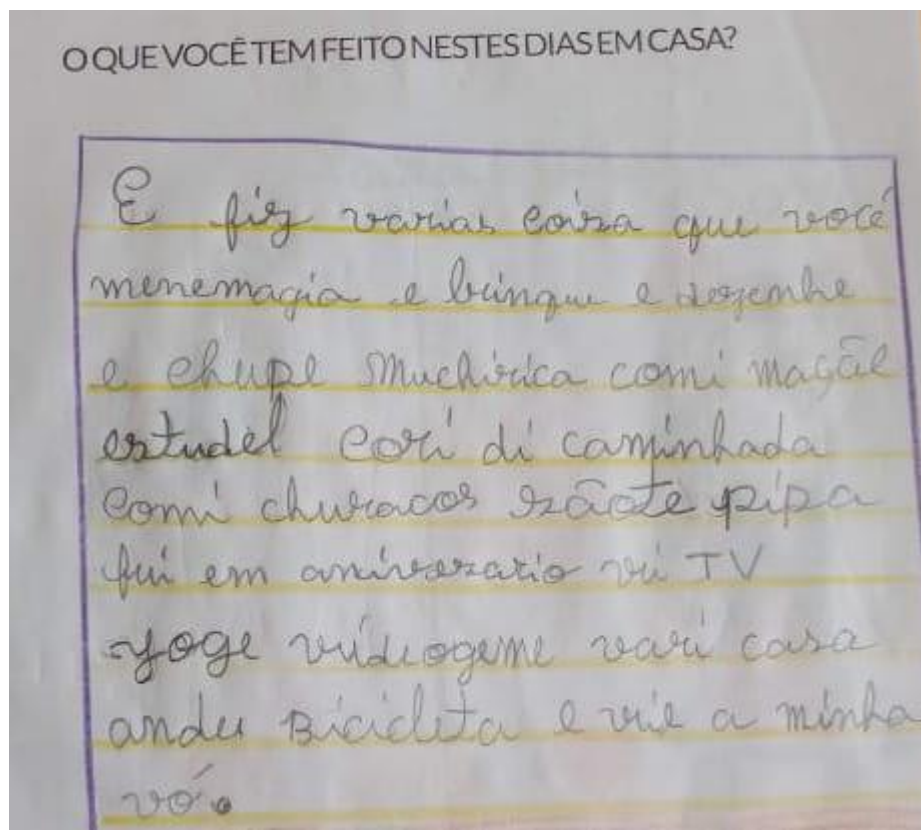 O QUE VOCÊ TEM FEITO NESTES DIAS EM CASA?
E fiz varias coiza que você
menemagia e bringue e dezenhe
e chupe muchirica comi maçãe
estudel cori di caminhada
comi churacos pipa
fui em aniverzario vi TV
yoge vídiogeme vari casa
andu Bicicleta e vie a minha
vó.